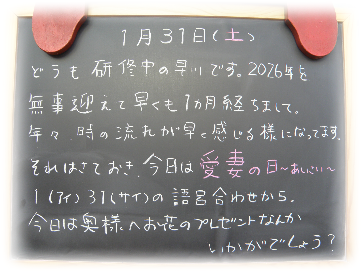 1月31日(土)
どうも研修中の早川です。2026年を
無事迎えて早くも1カ月経ちまして。
年々、時の流れが早く感じる様になってます。
それはさておき、今日は愛妻の日〜あいさい〜
1(アイ)31(サイ)の語呂合わせから。
今日は奥様へお花のプレゼントなんか
いかがでしょう?